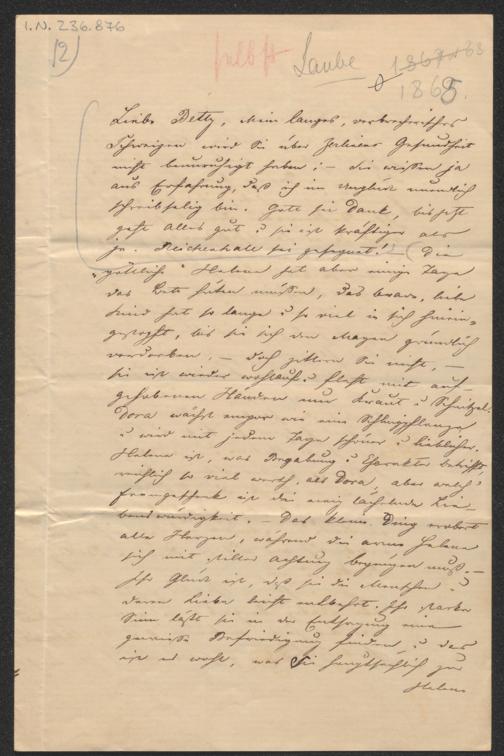 I.N. 236.876
12)
selbst
Laube
1867 1868
1865.
Liebe Betty, Mein langes, verbrecherisches
Schweigen wird Sie über Gesundheit
nicht beunruhigt haben; – Sie wissen ja
aus Erfahrung, daß ich im Unglück unendlich
schreibselig bin. Gott sei Dank, bis jetzt
geht alles gut u sie ist kräftiger als
je. Reichenhall sei gesegnet! (Die
"göttliche" Helene hat aber einige Tage
das Bett hüten müssen, das brave, liebe
Kind hat so lange u so viel in sich hinein-
gestopft, bis sie sich den Magen gründlich
verdorben. – doch zittern Sie nicht, –
sie ist wieder wohlauf u fleht mit auf-
gehobenen Händen um Kraut u Schnitzel.
Dora wächst empor wie eine Schlingpflanze
u wird mit jedem Tage schöner u lieblicher.
Helene ist, was Begabung u Charakter betrifft,
reichlich so viel werth, als Dora, aber welch'
ist die ewig lächelnde Lie-
benswürdigkeit. – Das kleine Ding erobert
alle Herzen, während die arme Helene
sich mit stiller Achtung begnügen muß. –
Ihr Glück ist, daß sie die Menschen u
deren Liebe leicht entbehrt. Ihr starker
Sinn läßt sie in der Entsagung eine
gewisse Befriedigung finden, u das
ist es wohl, was Sie hauptsächlich zur
Helene